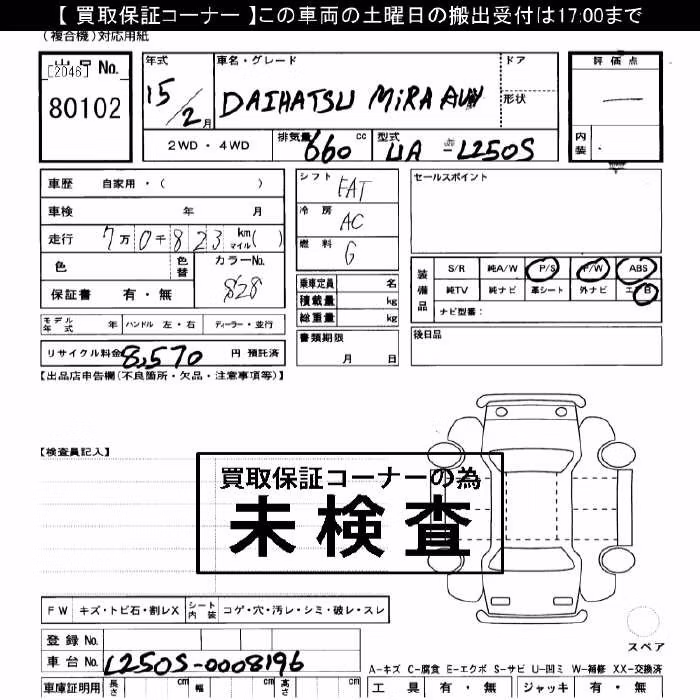 【 買取保証コーナー 】この車両の土曜日の搬出受付は17:00まで
(複合機)対応用紙
出品 No.
[2046]
80102
年式
15/2月
車名・グレード
DAIHATSU MiRA
ドア
形状
評価点
—
内装
2WD・4WD
排気量 660 cc
型式 UA-L250S
車歴 自家用・( )
車検 年 月
走行 7万0千823 km マイル( )
色
色替
カラーNo.
S28
保証書 有・無
シフト FAT
冷房 AC
燃料 G
乗車定員 名
積載量 kg
総重量 kg
書類期限
月 日
セールスポイント
装備品
S/R 純A/W P/S P/W ABS
純TV 純ナビ 革シート 外ナビ エアB
ナビ型番:
後日品
モデル年式 年 ハンドル 左・右 ディーラー・並行
リサイクル料金 8,570 円 預託済
【出品店申告欄(不良箇所・欠品・注意事項等)】
【検査員記入】
買取保証コーナーの為
未検査
FW キズ・トビ石・割レX シート内装 コゲ・穴・汚レ・シミ・破レ・スレ
登録 No.
車台 No. L250S-0008196
車庫証明用 長さ cm 幅 cm 高さ cm
スペア
A-キズ C-腐食 E-エクボ S-サビ U-凹ミ W-補修 XX-交換済
工具 有・無 ジャッキ 有・無